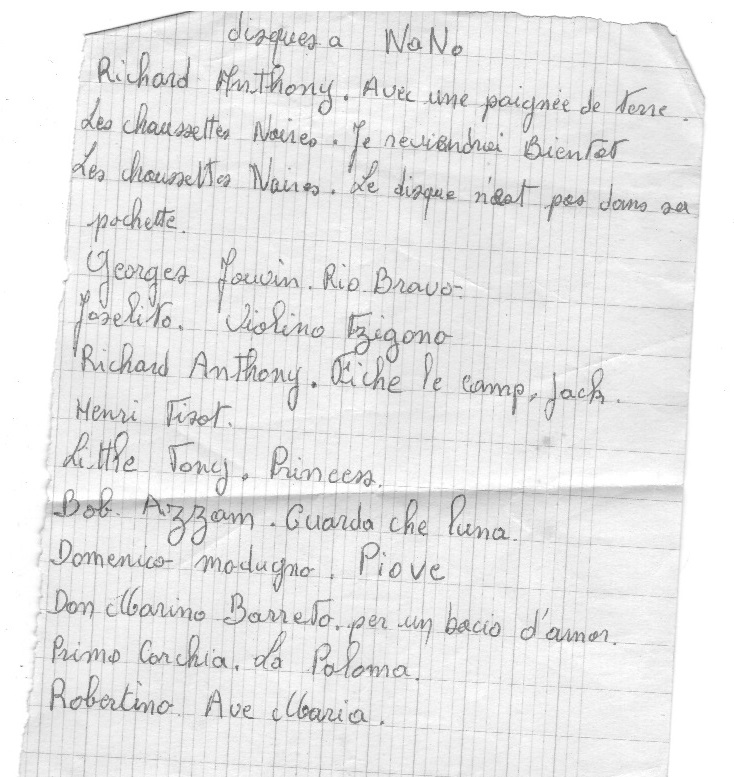 disques a NaNo
Richard Anthony. Avec une paignée de terre.
Les chaussettes Noires. Je reviendrai Bientot
Les chaussettes Noires. Le disque n'est pas dans sa
pochette.
Georges Jouvin. Rio Bravo.
Joselito. Violino Tzigono
Richard Anthony. Fiche le camp, jack.
Henri Tisot.
Little Tony. Princess.
Bob. Azzam. Guarda che luna.
Domenico modugno. Piove
Don Marino Barreto. per un bacio d'amor.
Primo Corchia. La Paloma.
Robertino. Ave Maria.